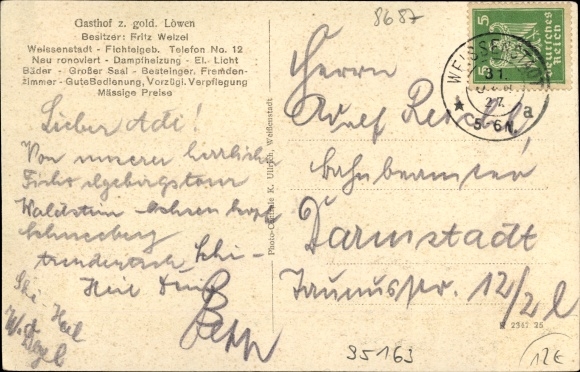 Gasthof z. gold. Löwen
Besitzer: Fritz Welzel
Weissenstadt - Fichtelgeb. Telefon No. 12
Neu renoviert - Dampfheizung - El. Licht
Bäder - Großer Saal - Besteinger. Fremden-
zimmer - Gute Bedienung, Vorzügl. Verpflegung
Mässige Preise
Lieber Adi!
Von unserer herrlichen
Fichtelgebirgstour
Waldstein Ochsenkopf
Schneeberg
Ski-
Heil Dein
Sepp
Ski-Heil
Photo-Centrale K. Ullrich, Weißenstadt
8687
5 Deutsches Reich 5
WEISSENSTADT
31.
27.
5-6N.
a
Herrn
Adolf
bahnbeamter
Darmstadt
Taunusstr. 12/2 l
2362 25
95163
12€